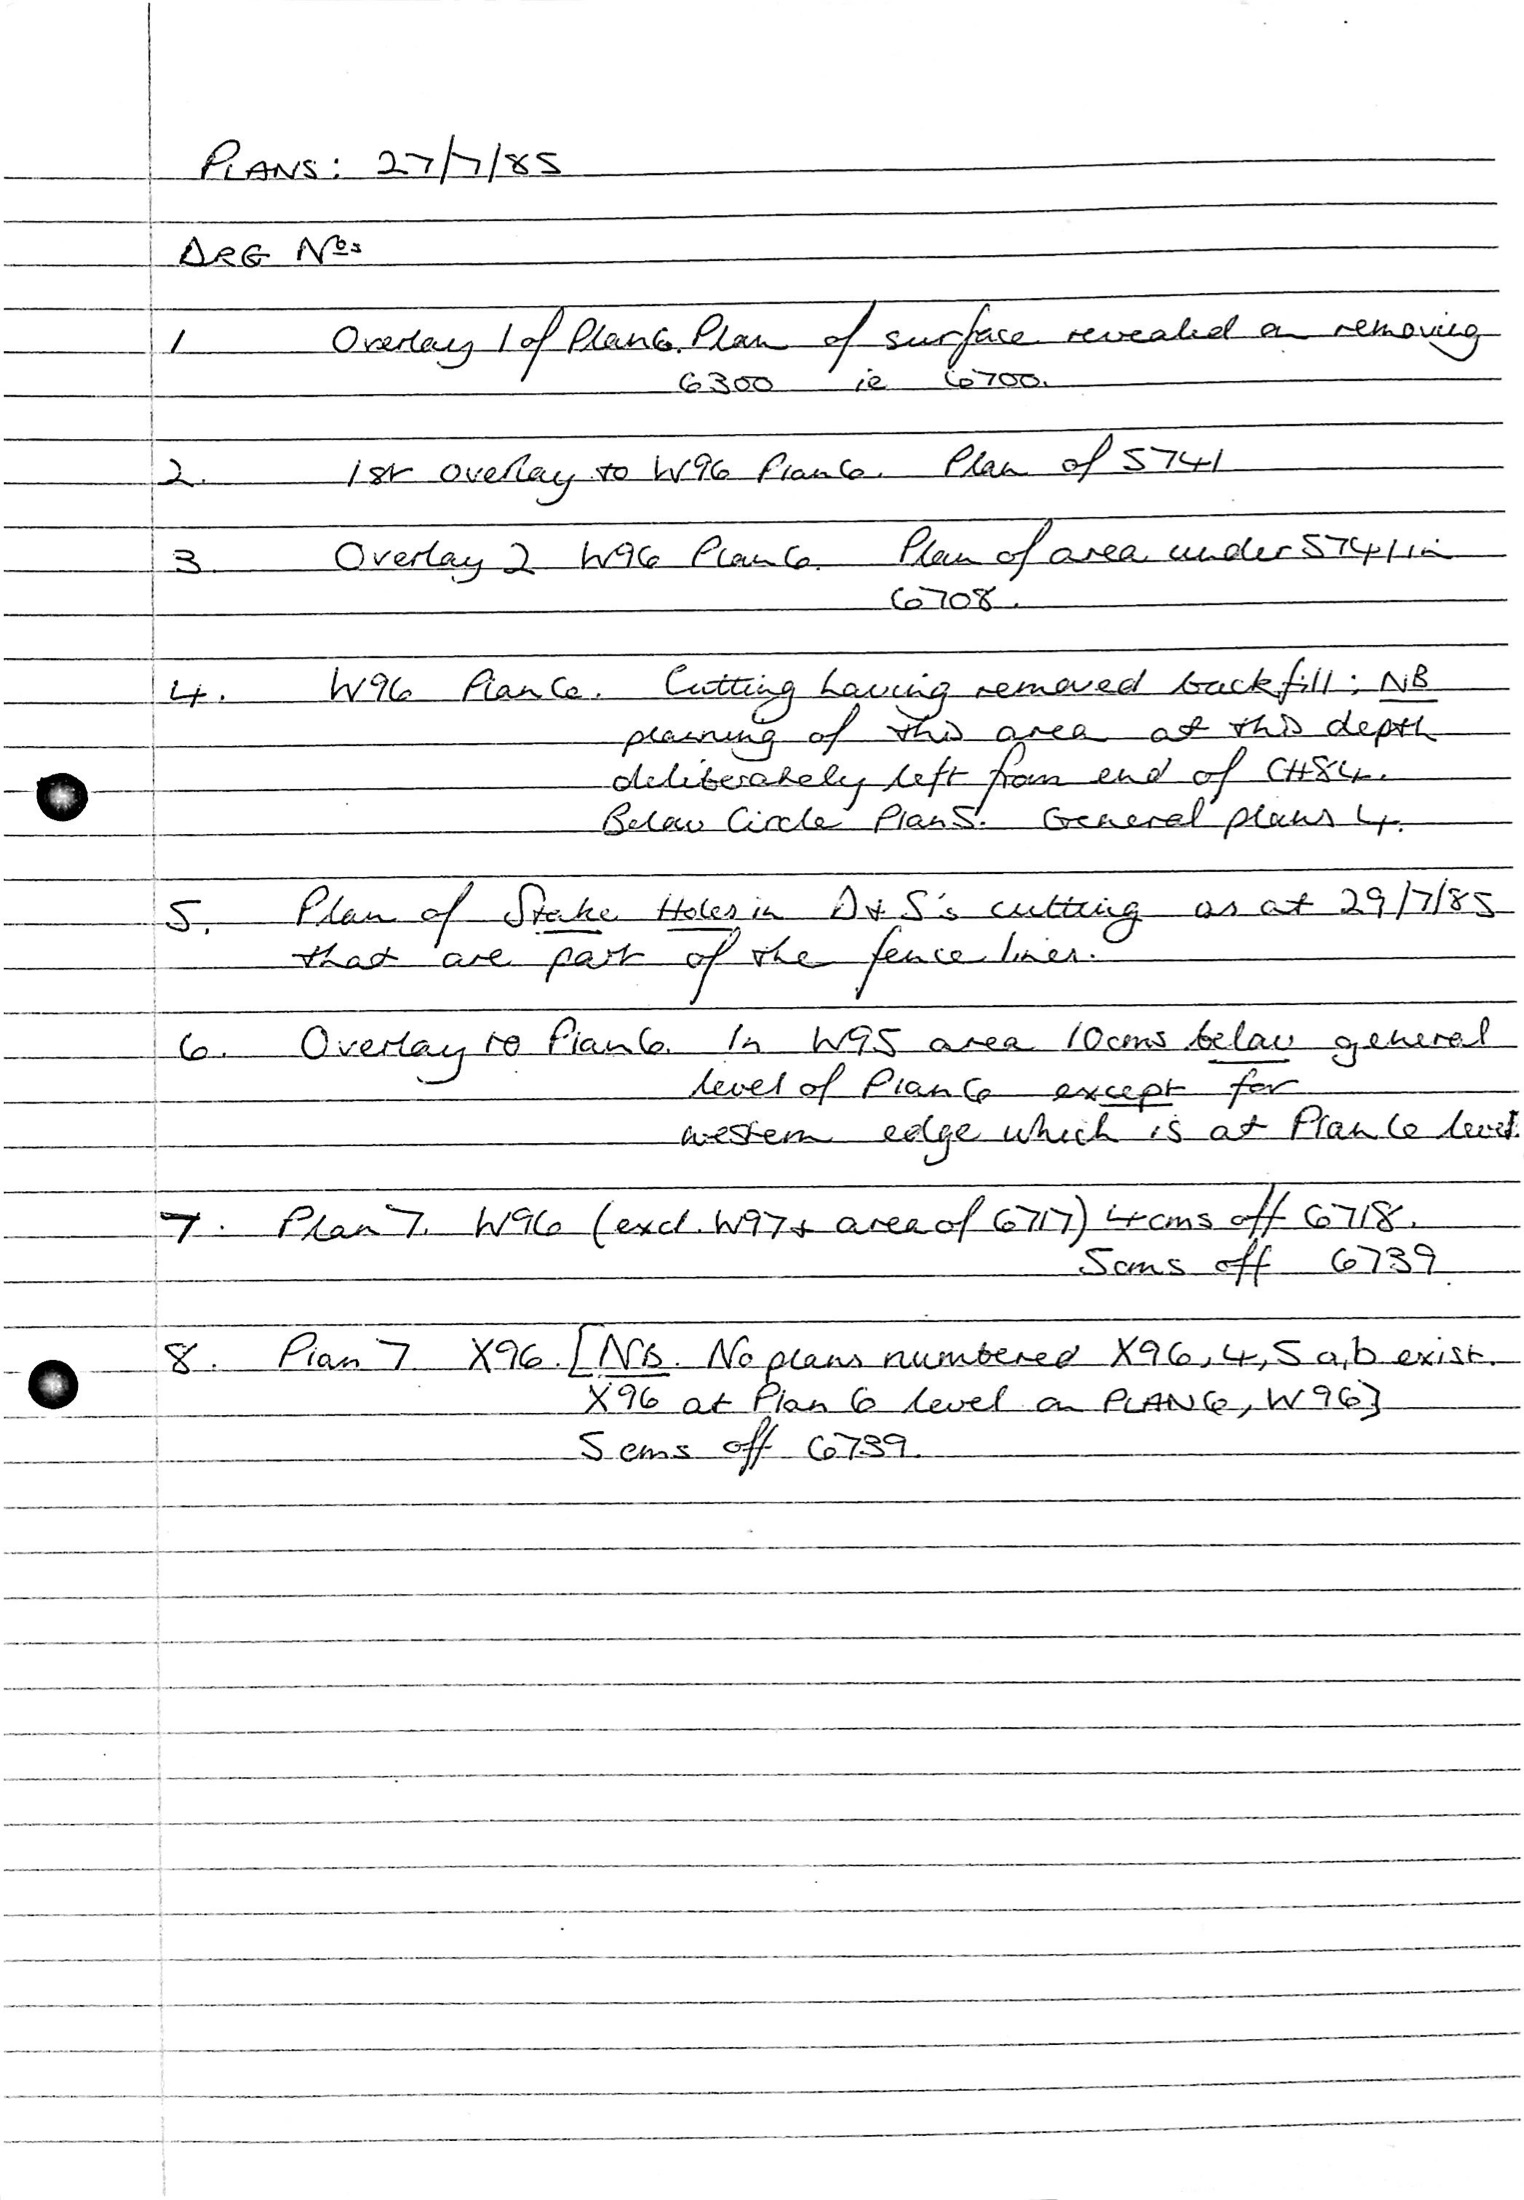 PLANS: 27/7/85
DRG Nos
1 Overlay 1 of Plan 6. Plan of surface revealed on removing
6300 ie 6700.
2. 1st overlay to W96 Plan 6. Plan of 5741
3. Overlay 2 W96 Plan 6. Plan of area under 5741 in
6708.
4. W96 Plan 6. Cutting having removed backfill; NB
planning of this area at this depth
deliberately left from end of CH84.
Below Circle Plan 5. General plans 4.
5. Plan of Stake Holes in D+S's cutting as at 29/7/85
that are part of the fence lines.
6. Overlay to Plan 6. In W95 area 10cms below general
level of Plan 6 except for
western edge which is at Plan 6 level.
7. Plan 7. W96 (excl. W97+ area of 6717) 4cms off 6718.
5cms off 6739
8. Plan 7 X96. [NB. No plans numbered X96, 4, 5 a,b exist.
X96 at Plan 6 level on PLAN 6, W96]
5 cms off 6739.